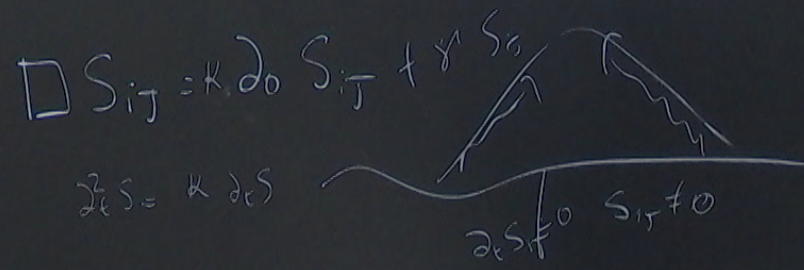 □ S_{ij} = κ ∂_0 S_{ij} + γ S_{ij}
∂_t^2 S = κ ∂_t S
∂_t S_{ij} ≠ 0 S_{ij} ≠ 0